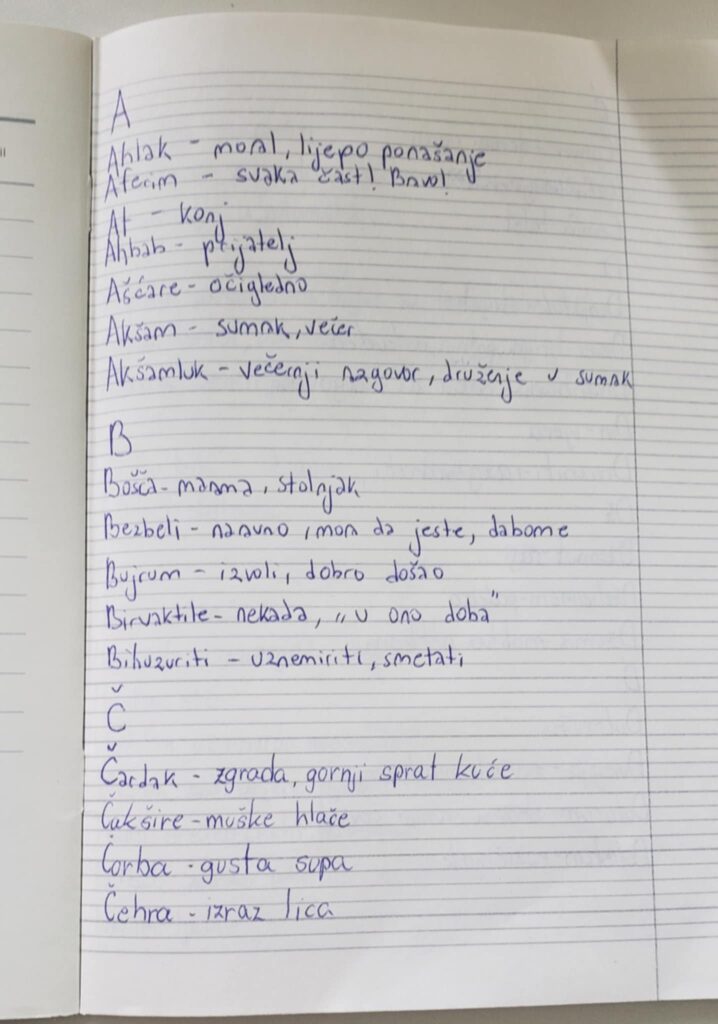 A
Ahlak - moral, lijepo ponašanje
Aferim - svaka čast! Bravo!
At - konj
Ahbab - prijatelj
Ašćare - očigledno
Akšam - sumrak, večer
Akšamluk - večernji razgovor, druženje u sumrak
B
Bošča - marama, stolnjak
Bezbeli - naravno, mora da jeste, dabome
Bujrum - izvoli, dobro došao
Birvaktile - nekada, "u ono doba"
Bihuzuriti - uznemiriti, smetati
Č
Čardak - zgrada, gornji sprat kuće
Čakšire - muške hlače
Čorba - gusta supa
Čehra - izraz lica